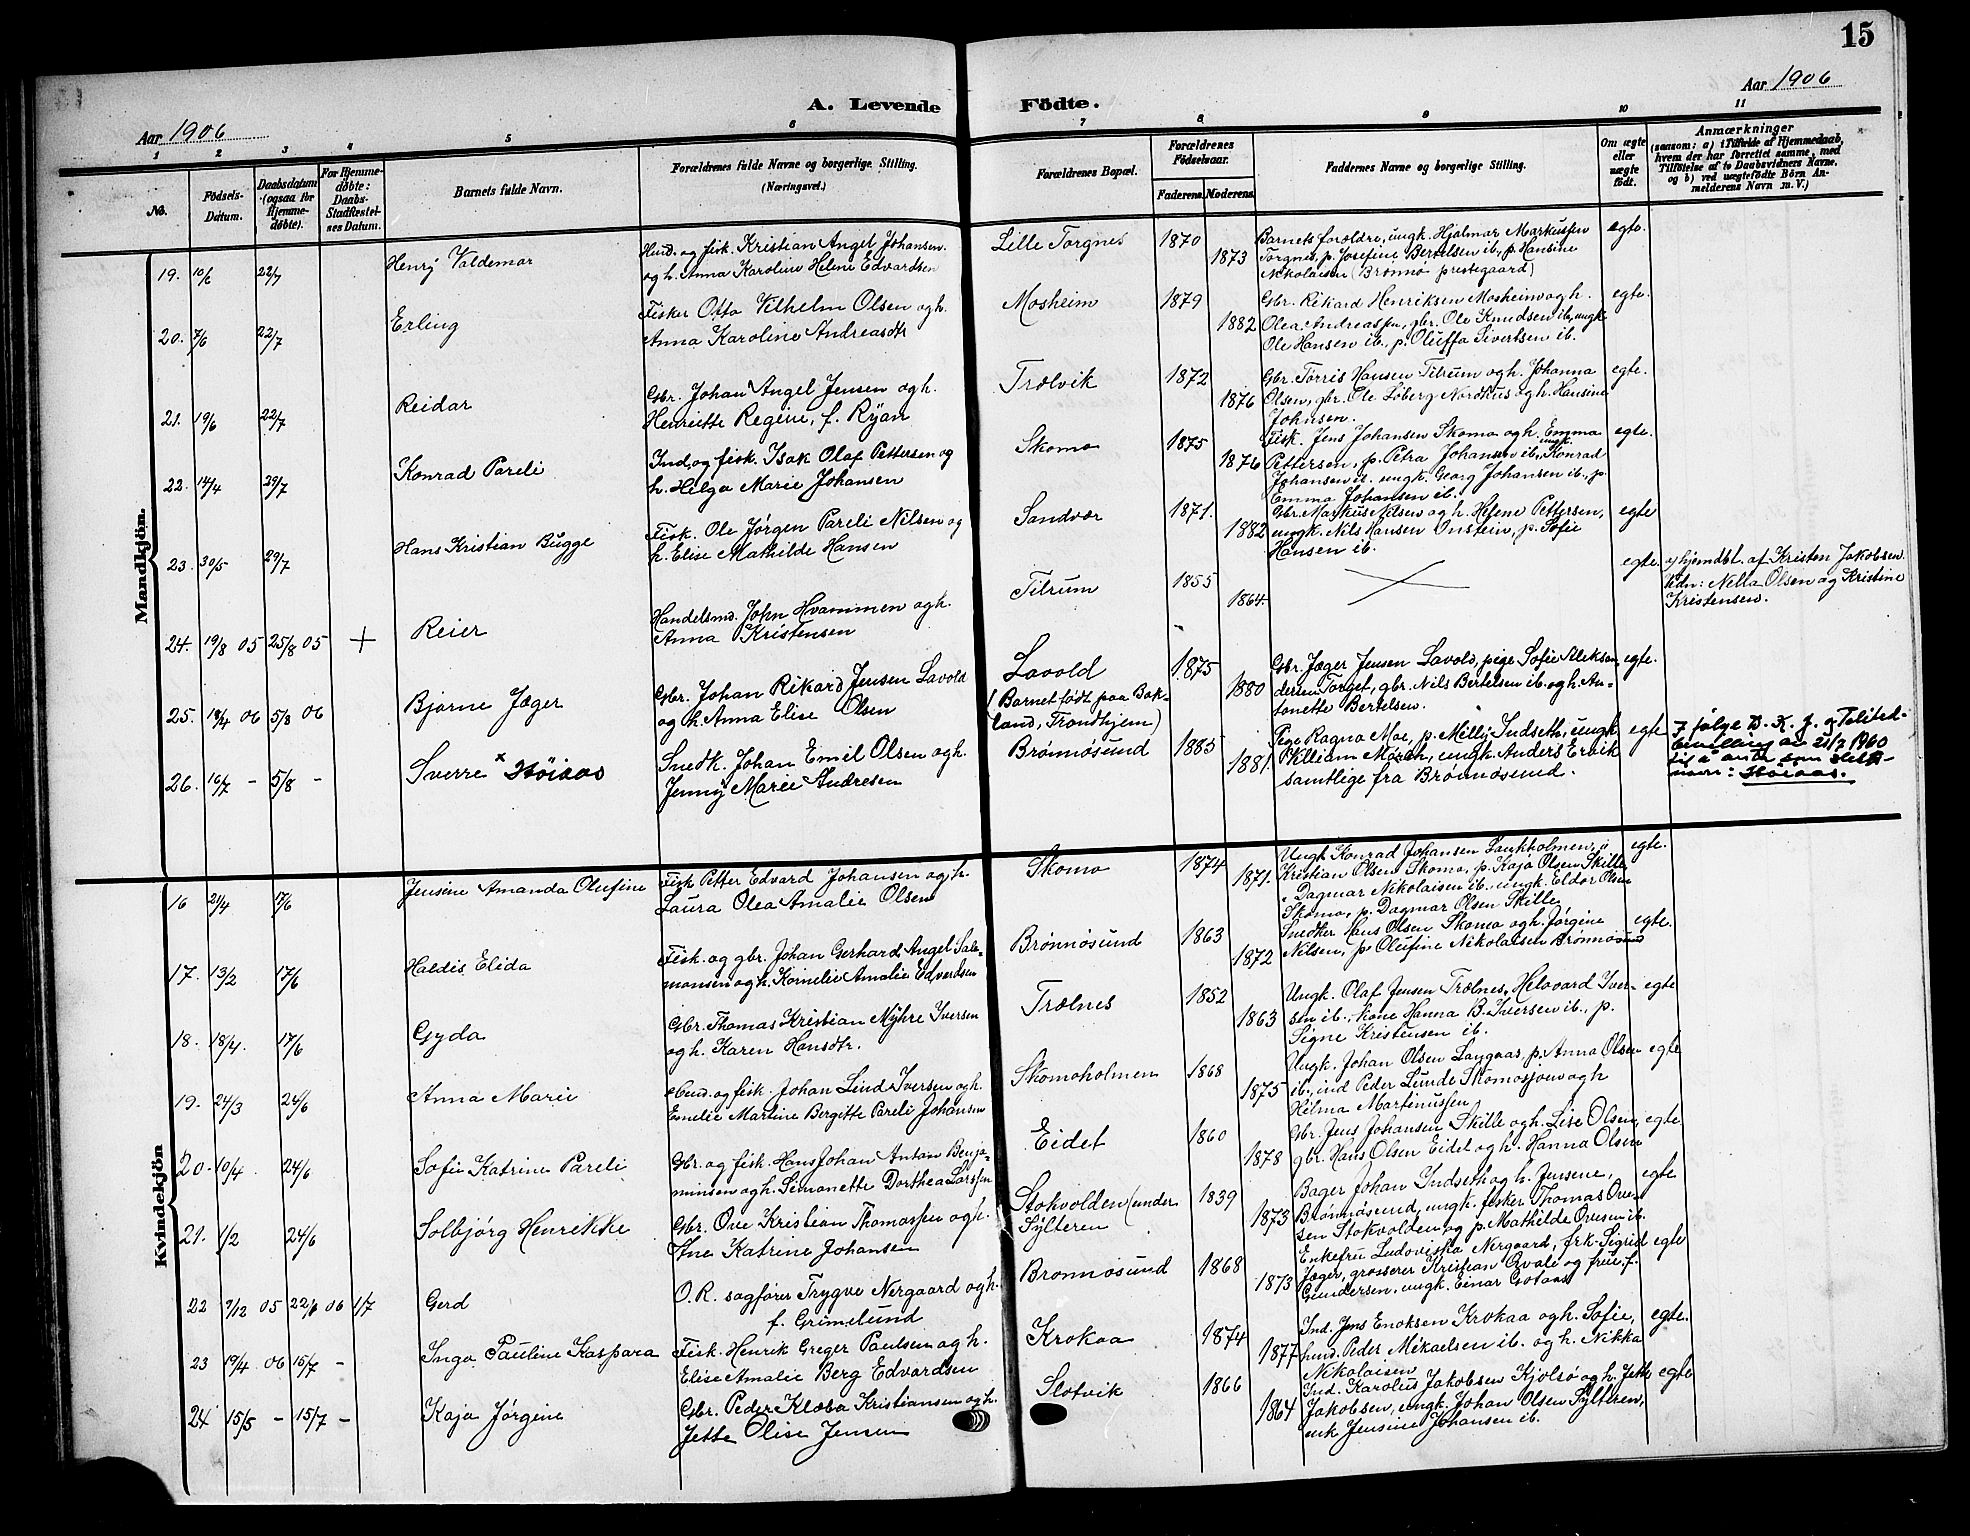 15
Aar 1906
Aar 1906
A. Levende Födte.
1 2 3 4 5 6 7 8 9 10 11
No.
Födsels-Datum.
Daabsdatum (ogsaa for Hjemmedöbte).
For Hjemmedöbte: Daabs-Stadfæstelses Datum.
Barnets fulde Navn.
Forældrenes fulde Navne og borgerlige Stilling. (Næringsvei.)
Forældrenes Bopæl.
Forældrenes Födselsaar.
Faderens. Moderens.
Faddernes Navne og borgerlige Stilling.
Om ægte eller uægte födt.
Anmærkninger
(saasom: a) i Tilfælde af Hjemmedaab, hvem der har forrettet samme, med Tilföielse af to Daabsvidners Navne, og b) ved uægtefödte Börn Anmelderens Navn m. V.)
Mandkjön.
19. 10/6 22/7 Henrÿ Valdemar
Husd. og fisk. Kristian Angel Johansen
og h. Anna Karoline Helene Edvardsen
Lille Torgnes 1870 1873
Barnets forældre, ungk. Hjalmar Markussen
Torgnes, p. Josefine Bertelsen ib., p. Hansine
Nikolaisen (Brønnø prestegaard)
egte.
20. 7/6 22/7 Erling
Fisker Otto Vilhelm Olsen og h.
Anna Karoline Andreasdtr
Mosheim 1879 1882
Gbr. Rikard Henriksen Mosheim og h.
Olea Andreassen, gbr. Ole Knudsen ib., ungk
Ole Hansen ib., p. Oluffa Sivertsen ib.
egte.
21. 19/6 22/7 Reidar
Gbr. Johan Angel Jensen og h.
Henriette Regine, f. Rÿan
Trælvik 1872 1876
Gbr. Torris Hansen Tilrum og h. Johanna
Olsen, gbr. Ole Løberg Nordhus og h. Hansine
Johnsen.
egte.
22. 14/4 29/7 Konrad Pareli
Ind. og fisk. Isak Olaf Pettersen og
h. Helga Marie Johansen
Skomo 1875 1876
Fisk. Jens Johansen Skomo og h. Emma
Pettersen, p. Petra Johansen ib., ungk. Konrad
Johansen ib. ungk. Georg Johansen ib., p.
Emma Johansen ib.
egte.
23. 30/5 29/7 Hans Kristian Bugge
Fisk. Ole Jørgen Pareli Nilsen og
h. Elise Mathilde Hansen
Sandvær 1871. 1882
Gbr. Markus Nilsen og h. Helene Pettersen,
ungk. Nils Hansen Onstein, p. Sofie
Hansen ib.
egte
24. 19/8 05 25/8 05 + Reier
Handelsmd. John Hvammen og h.
Anna Kristensen
Tilrum 1855 1864.
egte.
a) hjemdbt. af Kristen Jakobsen
Vidn: Nella Olsen og Kristine
Kristensen.
25. 19/4 06 5/8 06 Bjarne Jæger
Gbr. Johan Rikard Jensen Lavold
og h. Anna Elise Olsen
Lavold
(Barnet født paa Bak-
land, Trondhjem)
1875 1880
Gbr. Jæger Jensen Lavold, pige Sofie Aleksan-
dersen Torget, gbr. Nils Bertelsen ib. og h. An-
tonette Bertelsen.
egte.
26. 16/7 - 5/8 - Sverre x Høiaas
Snedk. Johan Emil Olsen og h.
Jenny Marie Andresen
Brønnøsund 1885 1881.
Pige Ragna Moe, p. Milly Indseth, ungk.
William March, ungk. Anders Ervik
samtlige fra Brønnøsund.
egte
I følge D. K. J. og Politid.
bevilling av 21/7 1960
til å anta som slekt-
navn: Høiaas.
Kvindekjön
16 21/4 17/6 Jensine Amanda Olufine
Fisk Petter Edvard Johansen og h.
Laura Olea Amalie Olsen
Skomo 1874 1871.
Ungk Konrad Johansen Laukholmen, i
Kristian Olsen Skomo, p. Kaja Olsen Skille
" Dagmar Nikolaisen ib. ungk. Eldor Olsen
Skomo, p. Dagmar Olsen Skille
egte.
17. 13/2 17/6 Haldis Elida
Fisk. og gbr. Johan Gerhard Angel Salo-
monsen og h. Kornelie Amalie Edvardsen
Brønnøsund 1863 1872
Snedker Hans Olsen Skomo og h. Jørgine
Nilsen, p. Olufine Nikolaisen Brønnøsund
egte.
18. 18/4. 17/6 Gyda
Gbr. Thomas Kristian Mÿhre Iversen
og h. Karen Hansdtr.
Trælnes 1852 1863
Ungk. Olaf Jensen Trælnes, Helovard Iver-
sen ib. kone Hanna B. Iversen ib., p.
Signe Kristensen ib.
egte
19. 24/3 24/6 Anna Marie
Husd. og fisk. Johan Lind Iversen og h.
Emelie Martine Bergitte Pareli Johansen
Skomoholmen 1868 1875
Ungk. Johan Olsen Laugaas, p. Anna Olsen
ib., ind Peder Lunde Skomosjøen og h
Hilma Martinussen
egte
20. 10/4 24/6 Sofie Katrine Pareli
Gbr. og fisk. Hans Johan Antan Benja-
minsen og h. Simonette Dorthea Larssen
Eidet 1860 1878
Gbr. Jens Johansen Skille og h. Lise Olsen,
gbr. Hans Olsen Eidet og h. Hanna Olsen
egte
21. 1/2 24/6 Solbjørg Henrikke
Gbr. Ove Kristian Thomassen og h.
Ane Katrine Johansen
Stokvolden (under
Sÿlteren
1839 1873
Bager Johan Indseth og h. Jensene,
Brønnøsund, ungk. fisker Thomas Ove-
sen Stokvolden og p. Mathilde Ovesen ib.
egte
22 9/12 05 22/6 06 1/7 Gerd
O. R. sagfører Trygve Nergaard og h.
f. Grimelund
Bronnøsund 1868 1873
Enkefru Ludoviska Nergaard, frk. Sigrid
Jæger, grosserer Kristian Qvale og frue f.
Gundersen, ungk. Einar Gotaas
egte
23 19/4 06 15/7 - Inga Pauline Kaspara
Fisk. Henrik Greger Paulsen og h.
Elise Amalie Berg Edvardsen
Krokaa 1874 1877
Ind. Jens Enoksen Krokaa og h. Sofie,
husd. Peder Mikaelsen ib. og h. Nikka
Nikolaisen
egte.
24 15/5 - 15/7 - Kaja Jørgine
Gbr. Peder Klæbo Kristiansen og h.
Jette Olise Jensen
Slotvik 1866 1864
Ind. Karolus Jakobsen Kjolsø og h. Jette
Jakobsen, ungk. Johan Olsen Sÿlteren,
enk Jensine Johansen ib.
egte